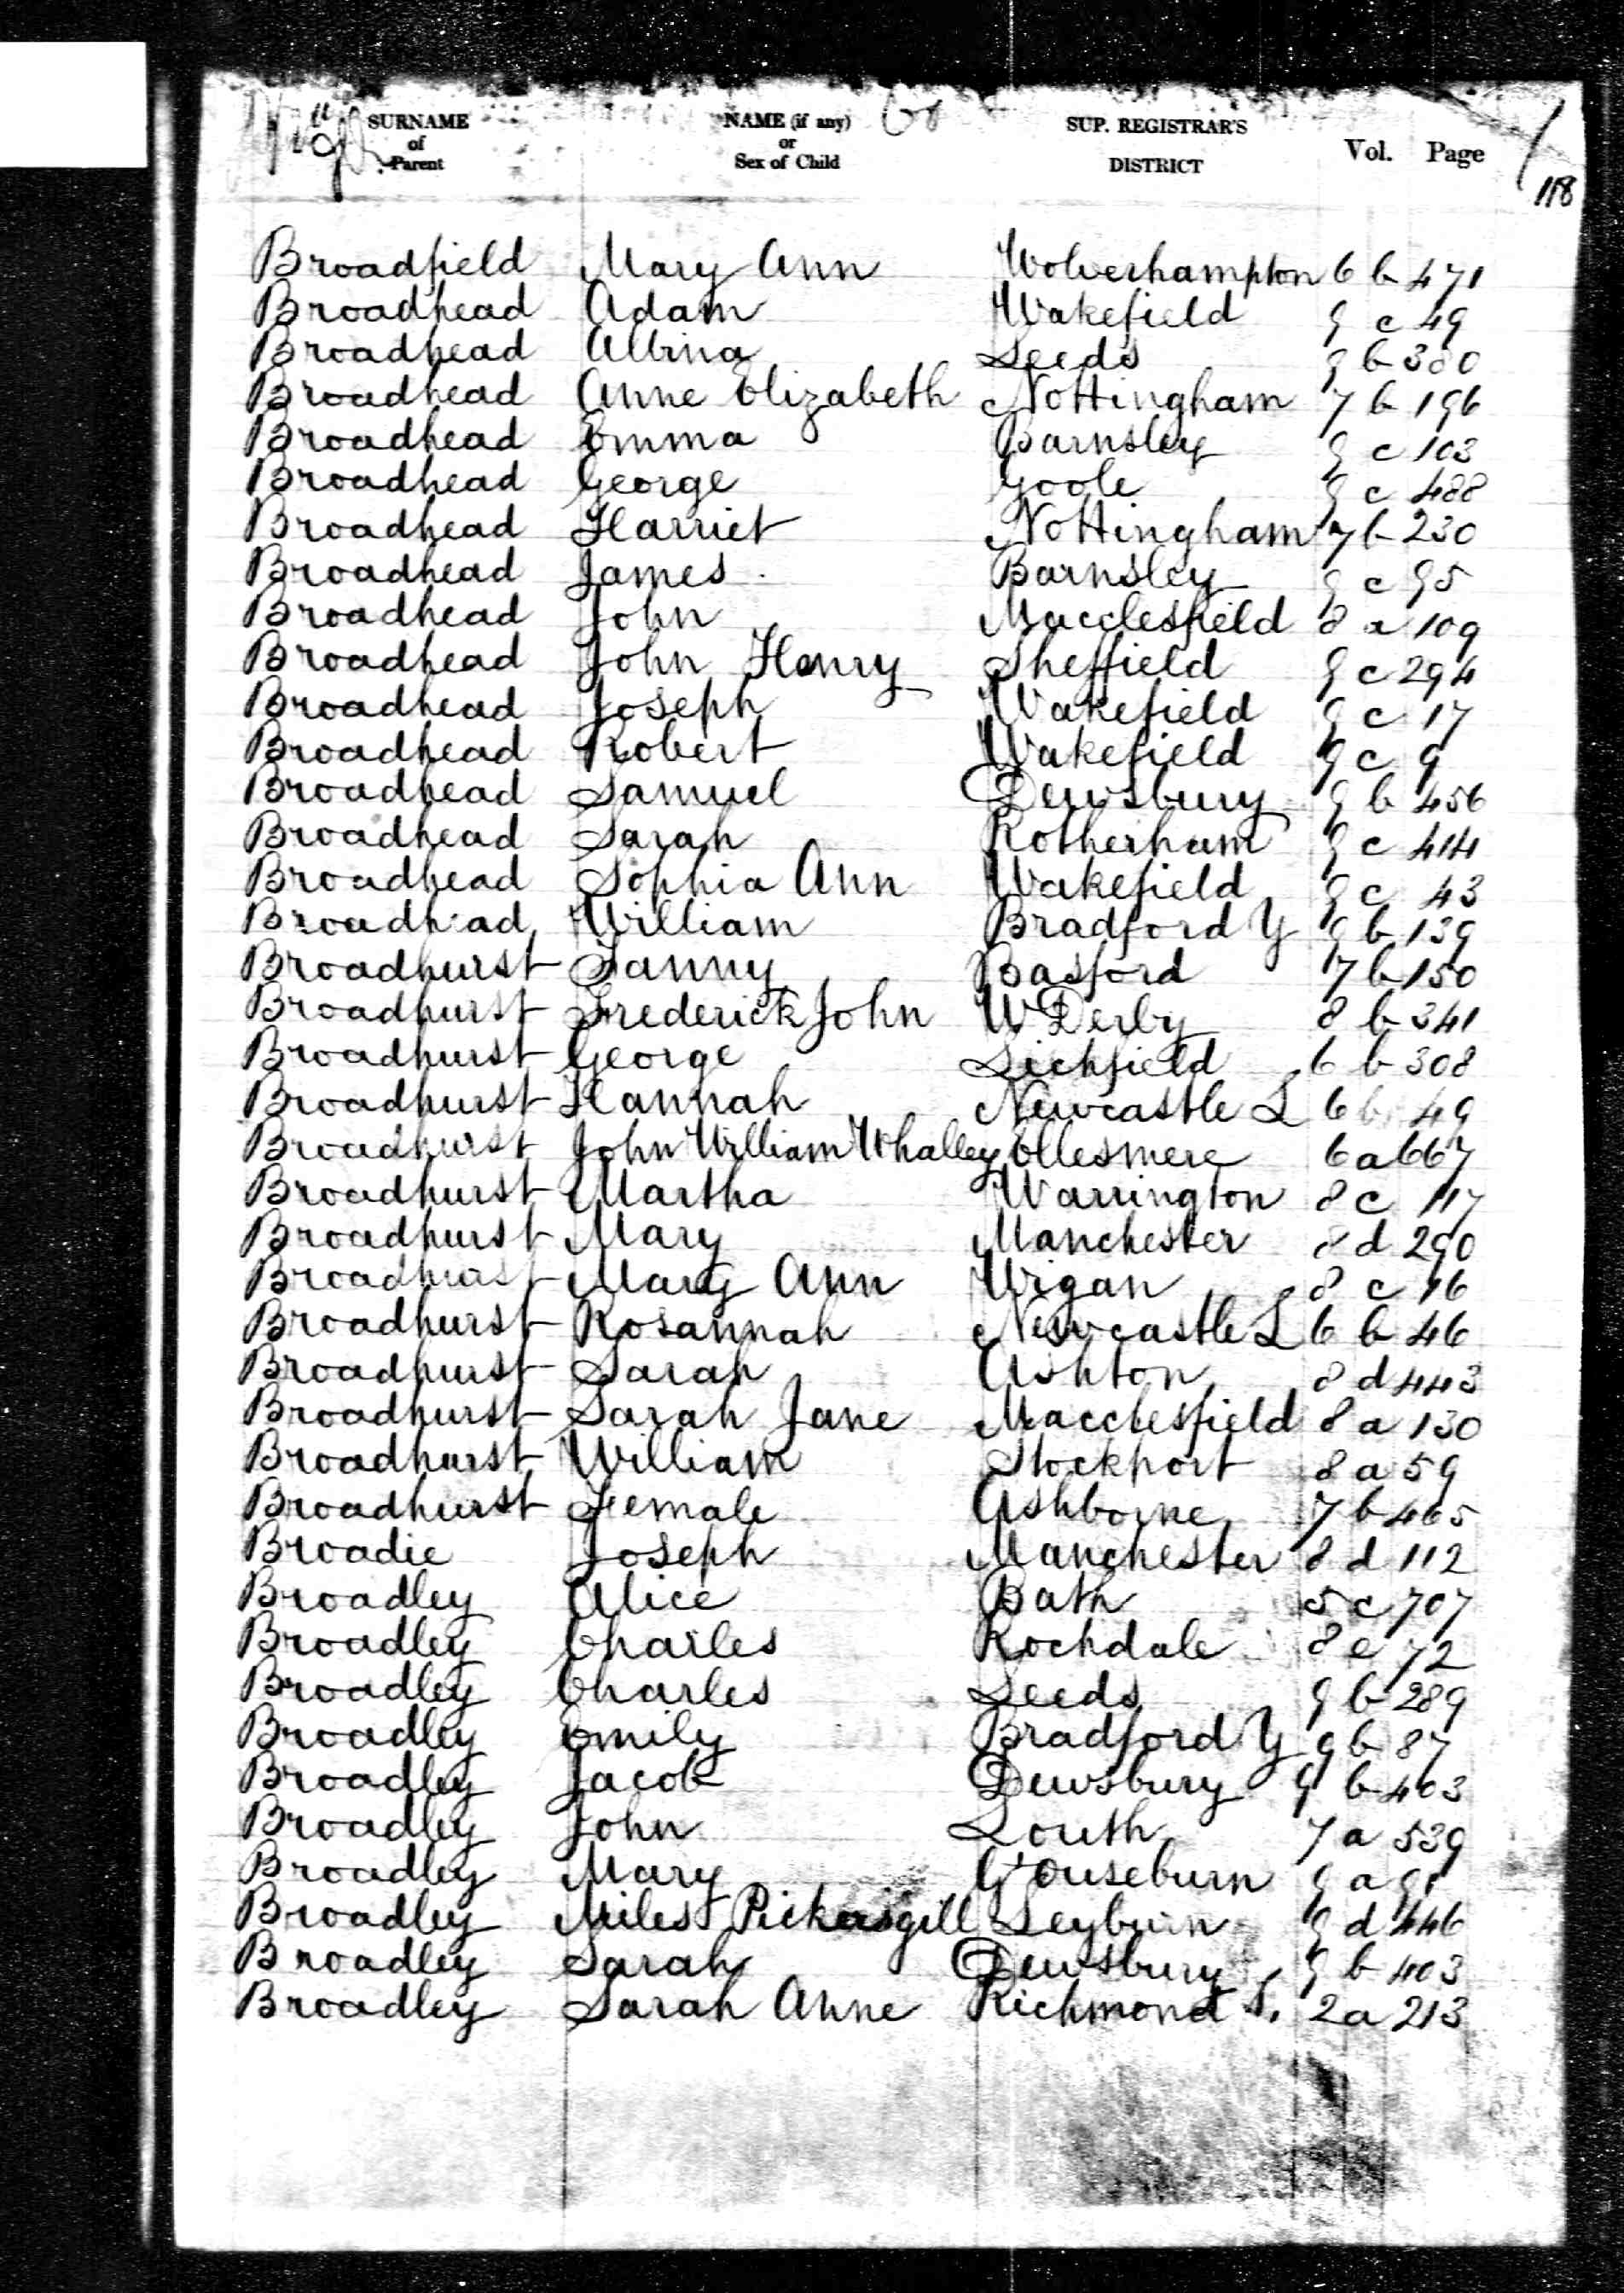 SURNAME of Parent NAME (if any) or Sex of Child SUP. REGISTRAR'S DISTRICT Vol. Page
118
Broadfield Mary Ann Wolverhampton 6 b 471
Broadhead Adam Wakefield 9 c 49
Broadhead Albina Leeds 9 b 380
Broadhead Anne Elizabeth Nottingham 7 b 196
Broadhead Emma Barnsley 9 c 103
Broadhead George Goole 9 c 488
Broadhead Harriet Nottingham 7 b 230
Broadhead James Barnsley 9 c 95
Broadhead John Macclesfield 8 a 109
Broadhead John Henry Sheffield 9 c 294
Broadhead Joseph Wakefield 9 c 17
Broadhead Robert Wakefield 9 c 9
Broadhead Samuel Dewsbury 9 b 456
Broadhead Sarah Rotherham 9 c 414
Broadhead Sophia Ann Wakefield 9 c 43
Broadhead William Bradford Y 9 b 139
Broadhurst Fanny Basford 7 b 150
Broadhurst Frederick John W Derby 8 b 341
Broadhurst George Lichfield 6 b 308
Broadhurst Hannah Newcastle L 6 b 49
Broadhurst John William Whalley Ellesmere 6 a 667
Broadhurst Martha Warrington 8 c 117
Broadhurst Mary Manchester 8 d 290
Broadhurst Mary Ann Wigan 8 c 16
Broadhurst Rosannah Newcastle L 6 b 46
Broadhurst Sarah Ashton 8 d 443
Broadhurst Sarah Jane Macclesfield 8 a 130
Broadhurst William Stockport 8 a 59
Broadhurst Female Ashborne 7 b 465
Broadie Joseph Manchester 8 d 112
Broadley Alice Bath 5 c 707
Broadley Charles Rochdale 8 e 72
Broadley Charles Leeds 9 b 289
Broadley Emily Bradford Y 9 b 87
Broadley Jacob Dewsbury 9 b 403
Broadley John Louth 7 a 539
Broadley Mary G Ouseburn 9 a
Broadley Miles Pickersgill Leyburn 9 d 446
Broadley Sarah Dewsbury 9 b 403
Broadley Sarah Anne Richmond S. 2 a 213